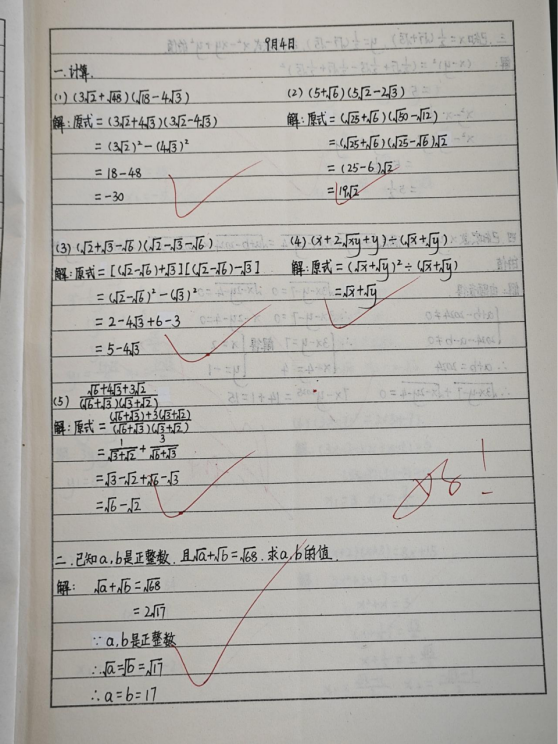 9月4日
一.计算.
(1) (3√2+√48)(√18-4√3)
解:原式=(3√2+4√3)(3√2-4√3)
=(3√2)²-(4√3)²
=18-48
=-30
(2) (5+√6)(5√2-2√3)
解:原式=(√25+√6)(√50-√12)
=(√25+√6)(√25-√6)√2
=(25-6)√2
=19√2
(3) (√2+√3-√6)(√2-√3-√6)
解:原式=[(√2-√6)+√3][(√2-√6)-√3]
=(√2-√6)²-(√3)²
=2-4√3+6-3
=5-4√3
(4) (x+2√xy+y)÷(√x+√y)
解:原式=(√x+√y)²÷(√x+√y)
=√x+√y
(5) (√6+4√3+3√2)/((√6+√3)(√3+√2))
解:原式=((√6+√3)+3(√3+√2))/((√6+√3)(√3+√2))
=1/(√3+√2)+3/(√6+√3)
=√3-√2+√6-√3
=√6-√2
二.已知a,b是正整数.且√a+√b=√68.求a,b的值.
解: √a+√b=√68
=2√17
∵a,b是正整数
∴√a=√b=√17
∴a=b=17